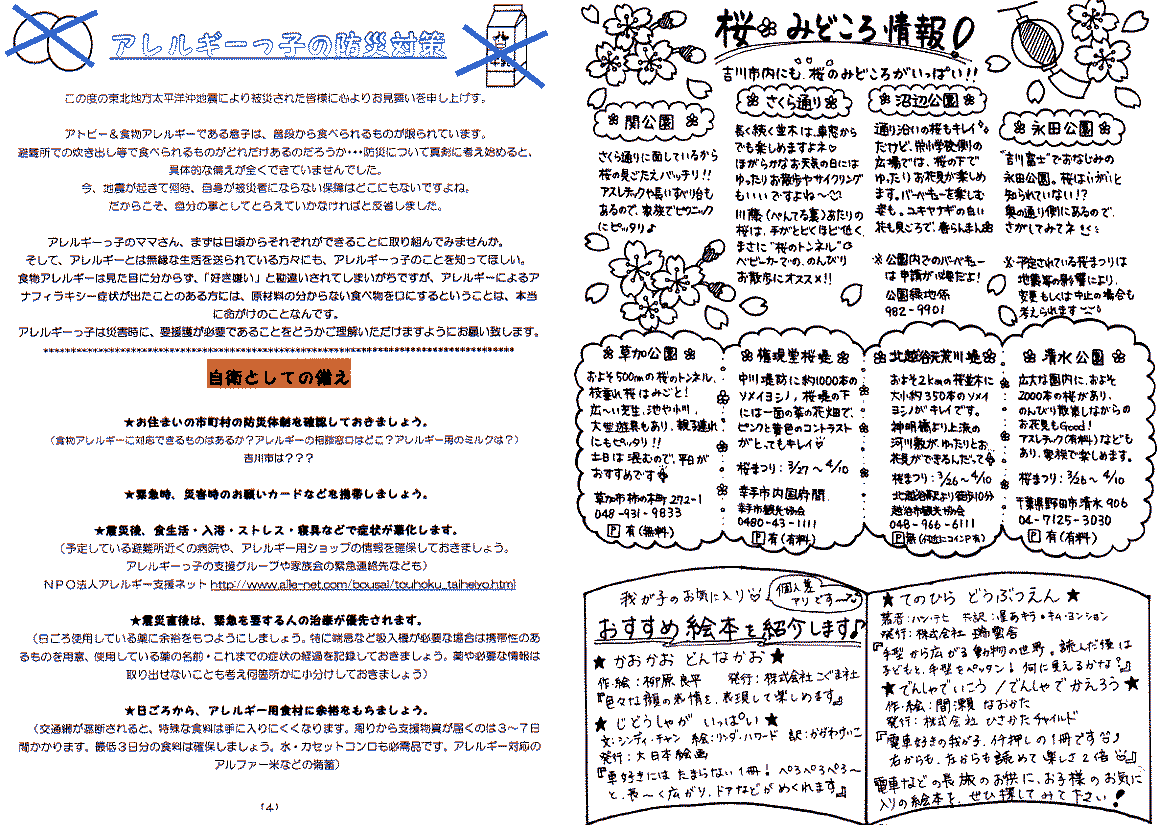 アレルギーっ子の防災対策
この度の東北地方太平洋沖地震により被災された皆様に心よりお見舞いを申し上げす。
アトピー＆食物アレルギーである息子は、普段から食べられるものが限られています。
避難所での炊き出し等で食べられるものがどれだけあるのだろうか･･･防災について真剣に考え始めると、
具体的な備えが全くできていませんでした。
今、地震が起きて何時、自身が被災者にならない保障はどこにもないですよね。
だからこそ、自分の事としてとらえていかなければと反省しました。
アレルギーっ子のママさん、まずは日頃からそれぞれができることに取り組んでみませんか。
そして、アレルギーとは無縁な生活を送られている方々にも、アレルギーっ子のことを知ってほしい。
食物アレルギーは見た目に分からず、「好き嫌い」と勘違いされてしまいがちですが、アレルギーによるア
ナフィラキシー症状が出たことのある方には、原材料の分からない食べ物を口にするということは、本当
に命がけのことなんです。
アレルギーっ子は災害時に、要援護が必要であることをどうかご理解いただけますようにお願い致します。
自衛としての備え
★お住まいの市町村の防災体制を確認しておきましょう。
（食物アレルギーに対応できるものはあるか？アレルギーの相談窓口はどこ？アレルギー用のミルクは？）
吉川市は？？？
★緊急時、災害時のお願いカードなどを携帯しましょう。
★震災後、食生活・入浴・ストレス・寝具などで症状が悪化します。
（予定している避難所近くの病院や、アレルギー用ショップの情報を確保しておきましょう。
アレルギーっ子の支援グループや家族会の緊急連絡先なども）
ＮＰＯ法人アレルギー支援ネット http://www.alle-net.com/bousai/touhoku_taiheiyo.html
★震災直後は、緊急を要する人の治療が優先されます。
（日ごろ使用している薬に余裕をもつようにしましょう。特に喘息など吸入器が必要な場合は携帯性のあ
るものを用意、使用している薬の名前・これまでの症状の経過を記録しておきましょう。薬や必要な情報は
取り出せないことも考え何箇所かに小分けしておきましょう）
★日ごろから、アレルギー用食材に余裕をもちましょう。
（交通網が遮断されると、特殊な食料は手に入りにくくなります。周りから支援物資が届くのは３～７日
間かかります。最低３日分の食料は確保しましょう。水・カセットコンロも必需品です。アレルギー対応の
アルファー米などの備蓄）
(4)
桜 みどころ情報
吉川市内にも、桜のみどころがいっぱい!!
関公園
さくら通りに面しているから
桜の見ごたえバッチリ!!
アスレチックや長いすべり台も
あるので、家族でピクニック
にピッタリ♪
さくら通り
長く続く並木は、車窓から
でも楽しめますよネ♡
ほがらかなお天気の日には
ゆったりお散歩やサイクリング
もいいですよね〜♡
川藤(ぺんてる裏)あたりの
桜は、手がとどくほど低く、
まさに"桜のトンネル"
ベビーカーでの、のんびり
お散歩にオススメ!!
沼辺公園
通り沿いの桜もキレイ
だけど、栄小学校側の
広場では、桜の下で
ゆったりお花見が楽しめ
ます。バーベキューを楽しむ
姿も。ユキヤナギの白い
花も見ごろで、春らんまん
※公園内でのバーベキュー
は申請が必要だよ!
公園緑地係
982-9901
永田公園
"吉川富士"でおなじみの
永田公園。桜は意外と
知られていない!?
奥の通り側にあるので、
さがしてみてネ
※予定されている桜まつりは
地震等の影響により、
変更もしくは中止の場合も
考えられます
草加公園
およそ500mの桜のトンネル、
枝垂れ桜はみごと!
広〜い芝生、池や小川、
大型遊具もあり、親子連れ
にもピッタリ!!
土日は混むので、平日が
おすすめです
草加市柿の木町272-1
048-931-9833
Ｐ有(無料)
権現堂桜堤
中川堤防に約1000本の
ソメイヨシノ、桜堤の下
には一面の菜の花畑で、
ピンクと黄色のコントラスト
がとってもキレイ♡
桜まつり:3/27〜4/10
幸手市内国府間
幸手市観光協会
0480-43-1111
Ｐ有(有料)
北越谷元荒川堤
およそ2kmの桜並木に
大小約350本のソメイ
ヨシノがキレイです。
神明橋より上流の
河川敷が、ゆったりとお
花見ができるんだって
桜まつり:3/26〜4/10
北越谷駅より徒歩10分
越谷市観光協会
048-966-6111
Ｐ無(付近にコインＰ有)
清水公園
広大な園内に、およそ
2000本の桜があり、
のんびり散策しながらの
お花見もGood!
アスレチック(有料)なども
あり、家族で楽しめます。
桜まつり:3/26〜4/10
千葉県野田市清水906
04-7125-3030
Ｐ有(有料)
我が子のお気に入り♡
個人差アリです〜
おすすめ絵本を紹介します♪
★かおかお どんなかお★
作・絵:柳原良平 発行:株式会社こぐま社
『色々な顔の表情を、表現して楽しめます。』
★じどうしゃが いっぱい★
文:シンディ・チャン 絵:リンダ・ハワード 訳:かがわけいこ
発行:大日本絵画
『車好きにはたまらない1冊! ぺろぺろぺろ〜
と、長〜く広がり、ドアなどがめくれます』
★てのひら どうぶつえん★
発行:株式会社 瑞雲舎
『手型から広がる動物の世界。読んだ後は
子どもと、手型をペッタン! 何に見えるかな?』
★でんしゃでいこう/でんしゃでかえろう★
作・絵:間瀬なおかた
発行:株式会社ひさかたチャイルド
『電車好きの我が子、イチ押しの1冊です
右からも、左からも読めて楽しさ2倍』
電車などの長旅のお供に、お子様のお気に
入りの絵本を、ぜひ探してみて下さい!